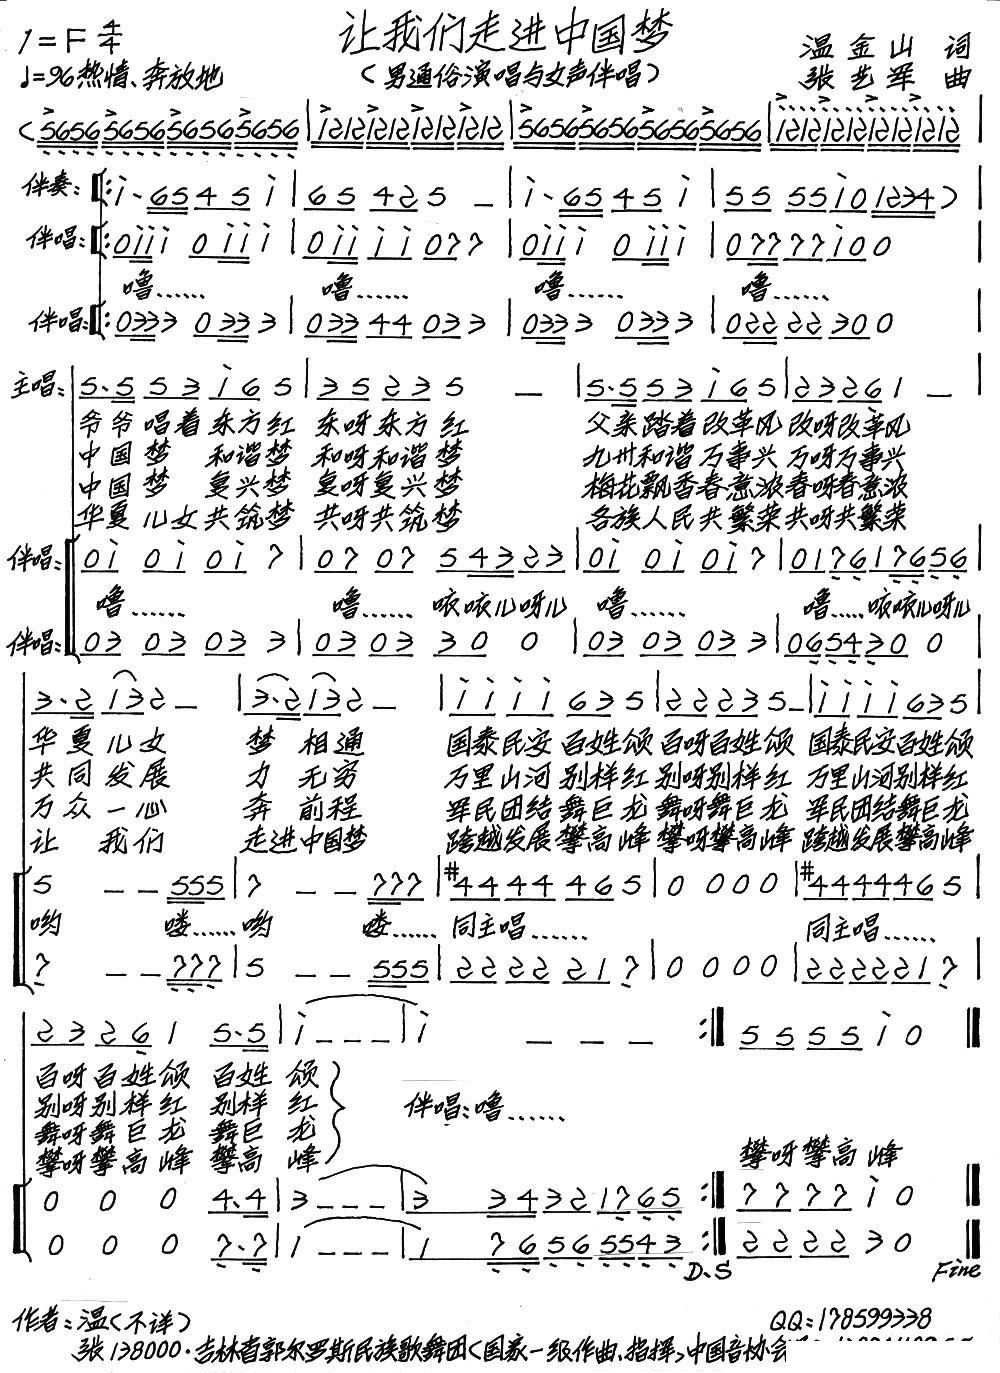 1=F 4/4
让我们走进中国梦
温金山 词
♩=96热情、奔放地
（男通俗演唱与女声伴唱）
张艺军 曲
(5656 5656 5656 5656 | 1212 1212 1212 1212 | 5656 5656 5656 5656 | 1212 1212 1212 1212 |
伴奏: ‖: 1·65 4 5 1 | 6 5 4 2 5 — | 1·65 4 5 1 | 5 5 5 5 1 0 1234)
伴唱: ‖: 0111 0 111 | 011 1 1 0 7 7 | 0111 0 111 | 077 7 7 1 0 0
噜…… 噜…… 噜…… 噜……
伴唱: ‖: 0333 0 33 3 | 033 4 4 0 3 3 | 0333 0 33 3 | 022 2 2 3 0 0
主唱: 5·5 5 3 1 6 5 | 3 5 2 3 5 — | 5·5 5 3 1 6 5 | 2 3 2 6 1 —
爷爷唱着东方红 东呀东方红 父亲踏着改革风 改呀改革风
中国梦 和谐梦 和呀和谐梦 九州和谐万事兴 万呀万事兴
中国梦 复兴梦 复呀复兴梦 梅花飘香春意浓 春呀春意浓
华夏儿女共筑梦 共呀共筑梦 各族人民共繁荣 共呀共繁荣
伴唱: 01 01 01 7 | 07 07 5 43 2 3 | 01 01 01 7 | 0176 1765 6
噜…… 噜…… 咴咴儿呀儿 噜…… 噜……咴咴儿呀儿
伴唱: 03 03 03 3 | 03 03 3 0 0 | 03 03 03 3 | 065430 0
3·2 1 3 2 — | 3·2 1 3 2 — | 1 1 1 1 6 3 5 | 2 2 2 3 5 — | 1 1 1 1 6 3 5
华夏儿女 梦相通 国泰民安百姓颂 百呀百姓颂 国泰民安百姓颂
共同发展 力无穷 万里山河别样红 别呀别样红 万里山河别样红
万众一心 奔前程 军民团结舞巨龙 舞呀舞巨龙 军民团结舞巨龙
让我们 走进中国梦 跨越发展攀高峰 攀呀攀高峰 跨越发展攀高峰
5 — — 555 | 7 — — 777 | #4 4 4 4 4 6 5 | 0 0 0 0 | #4 4 4 4 4 6 5
哟 喽……哟 喽…… 同主唱…… 同主唱……
7 — — 777 | 5 — — 555 | 2 2 2 2 2 1 7 | 0 0 0 0 | 2 2 2 2 2 1 7
2 3 2 6 1 5·5 | 1 — — — | 1 — — — :‖ 5 5 5 5 1 0 ‖
百呀百姓颂 百姓颂
别呀别样红 别样红
伴唱:噜……
舞呀舞巨龙 舞巨龙
攀呀攀高峰 攀高峰
攀呀攀高峰
0 0 0 4·4 | 3 — — — | 3 3 4 3 2 1 7 6 5 :‖ 7 7 7 7 1 0 ‖
0 0 0 7·7 | 1 — — — | 1 7 6 5 6 5 5 4 3 :‖ 2 2 2 2 3 0 ‖
D、S
Fine
作者:温（不详）
QQ:178599338
张138000·吉林省郭尔罗斯民族歌舞团（国家一级作曲、指挥）中国音协会